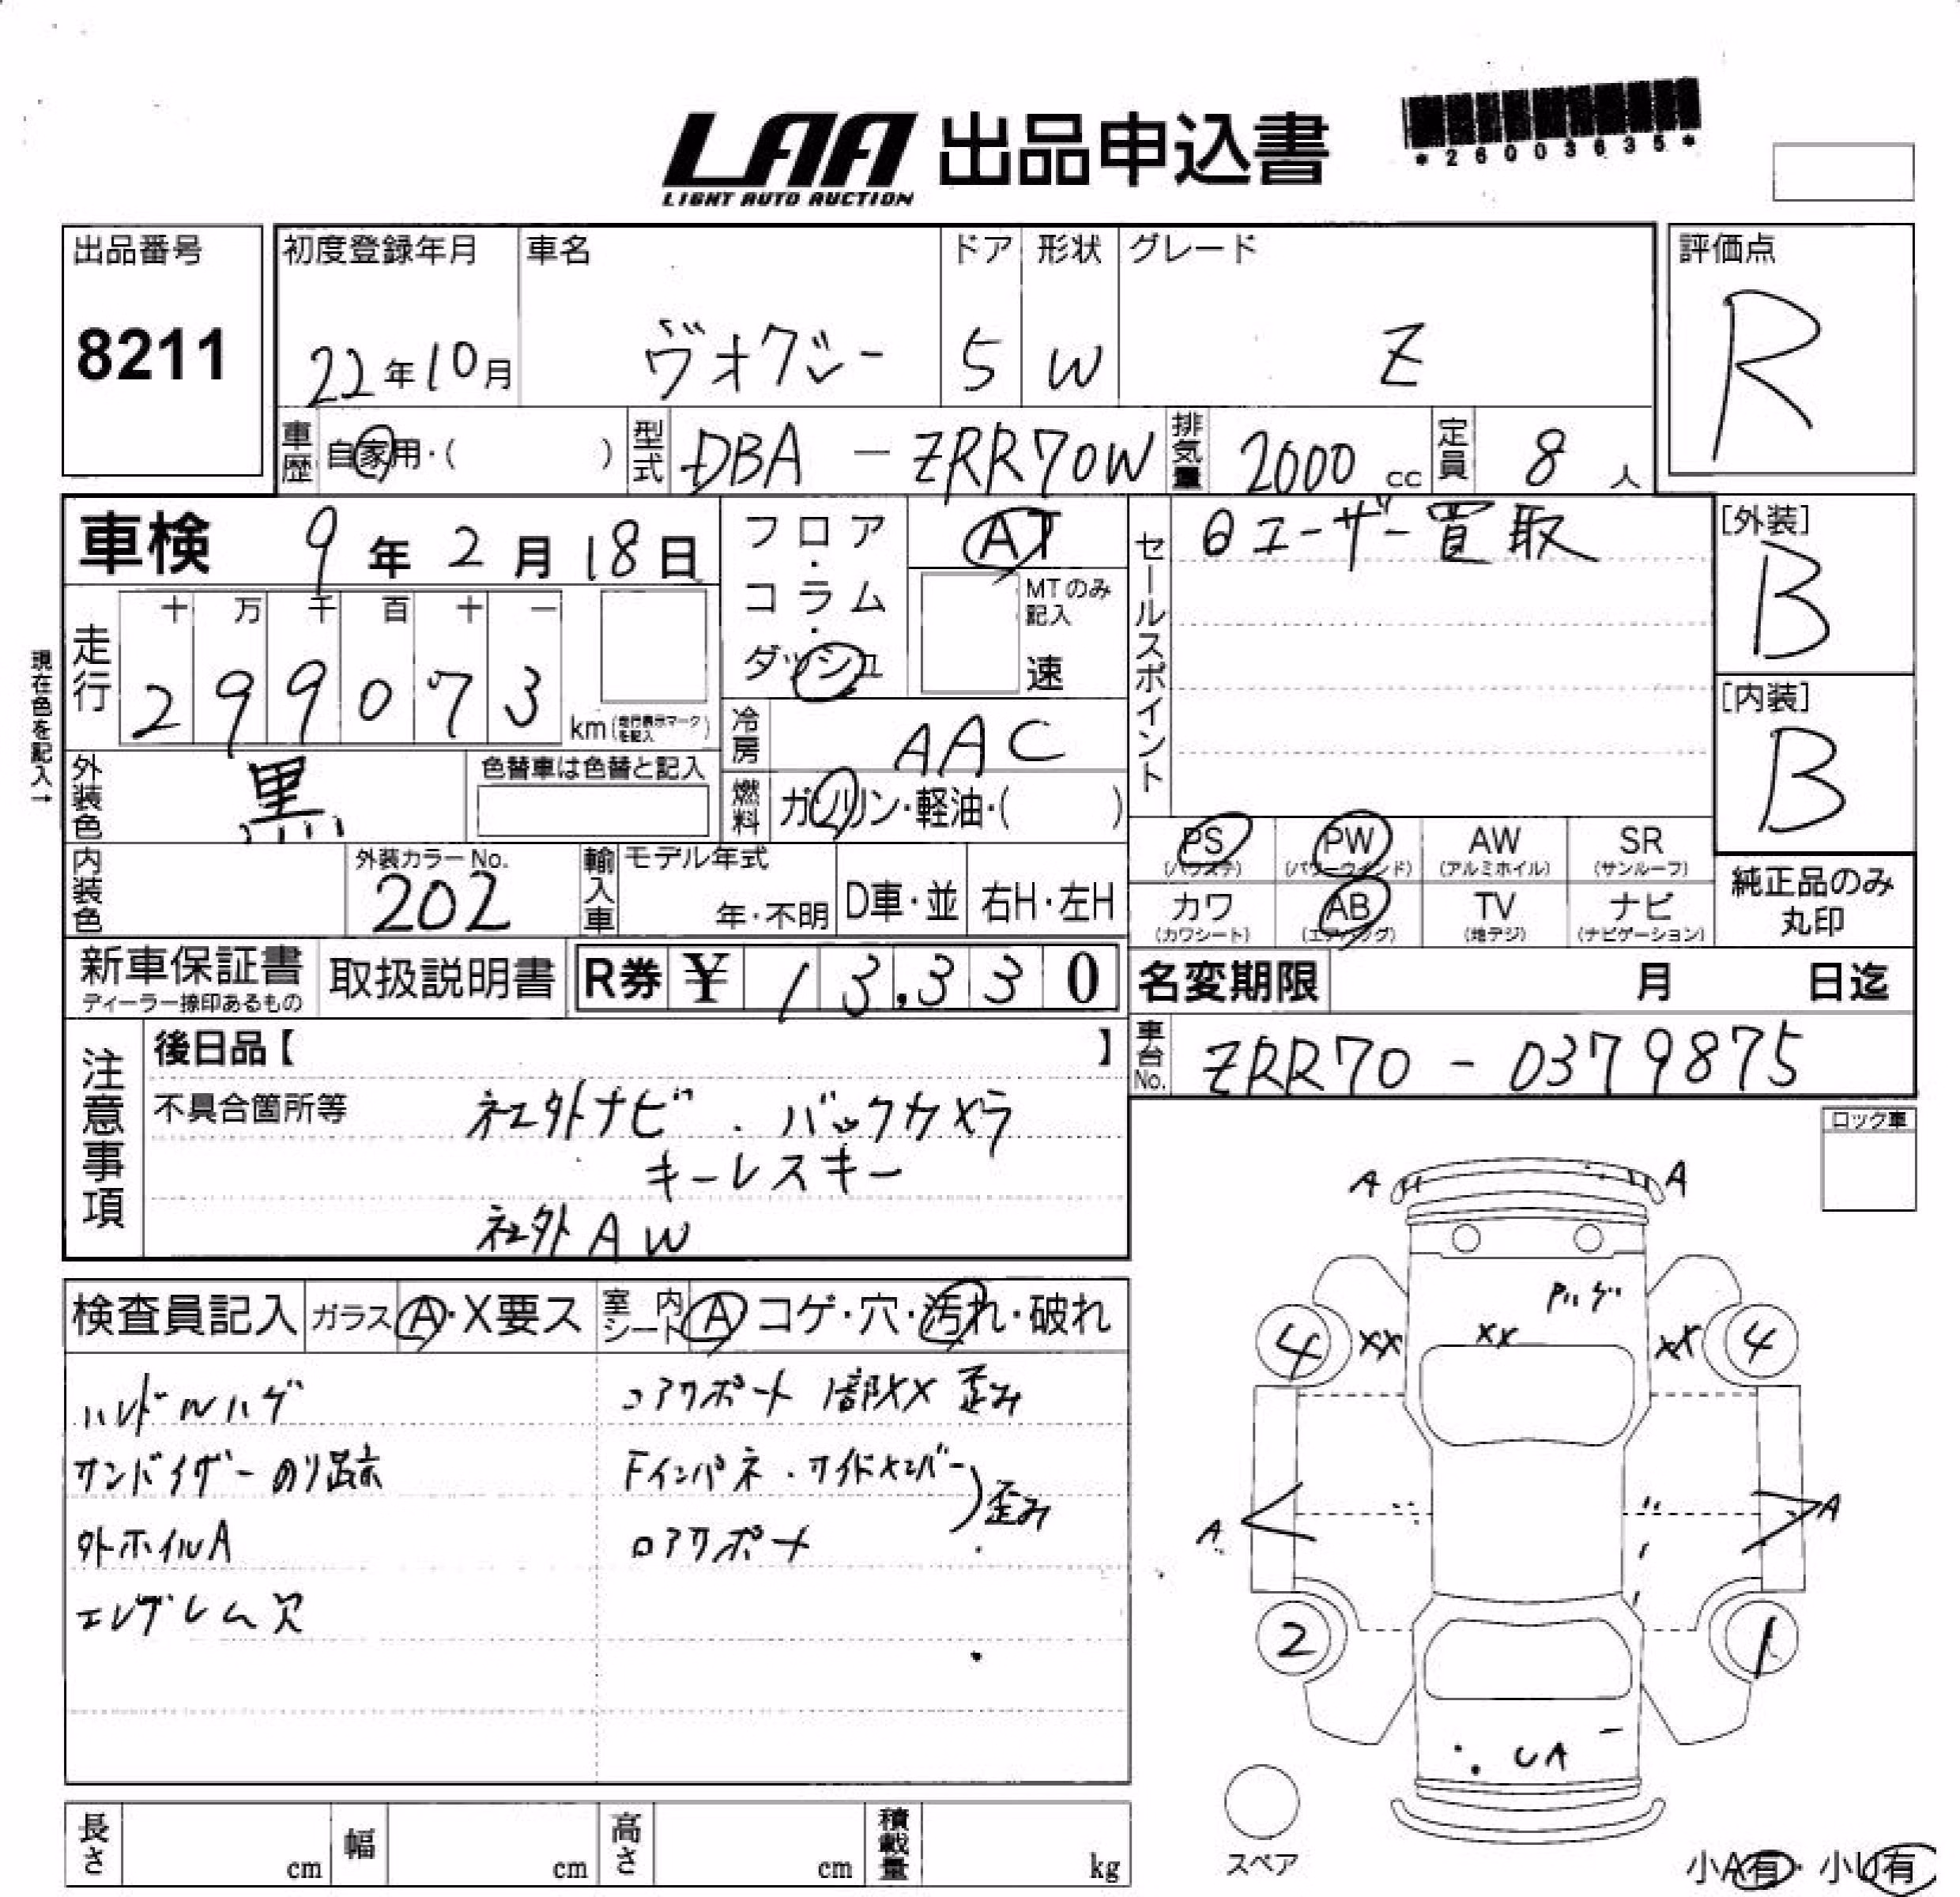 LAA 出品申込書
LIGHT AUTO AUCTION
*26003635*
出品番号
8211
初度登録年月
22年10月
車名
ヴオクシー
ドア
5
形状
W
グレード
Z
評価点
R
車歴 自家用・( )
型式 DBA - ZRR70W
排気量 2000 cc
定員 8 人
車検 9年2月18日
現在色を記入→
走行
十 万 千 百 十 一
2 9 9 0 7 3
km(走行表示マークを記入)
フロア・コラム・ダッシュ
AT
MTのみ記入
速
冷房 AAC
燃料 ガソリン・軽油・( )
セールスポイント
ユーザー買取
[外装]
B
[内装]
B
外装色 黒
色替車は色替と記入
内装色
外装カラーNo.
202
輸入車
モデル年式
年・不明
D車・並
右H・左H
PS
(パワステ)
PW
(パワーウインド)
AW
(アルミホイル)
SR
(サンルーフ)
カワ
(カワシート)
AB
(エアバッグ)
TV
(地デジ)
ナビ
(ナビゲーション)
純正品のみ
丸印
新車保証書
ディーラー捺印あるもの
取扱説明書
R券 ¥ 13,330
名変期限 月 日迄
車台No. ZRR70 - 0379875
注意事項
後日品【 】
不具合箇所等
社外ナビ・バックカメラ
キーレスキー
社外AW
ロック車
検査員記入
ガラス A・X要ス
室内シート A コゲ・穴・汚れ・破れ
ハンドルハゲ
サンバイザーのり跡
外ホイルA
エンブレム欠
コアサポート 1部XX 歪み
Fインパネ・サイドメンバー
歪み
ロアサポート
A
A
ハゲ
XX
XX
XX
4
4
A
A
2
1
UA
スペア
小A有・小U有
長さ cm
幅 cm
高さ cm
積載量 kg